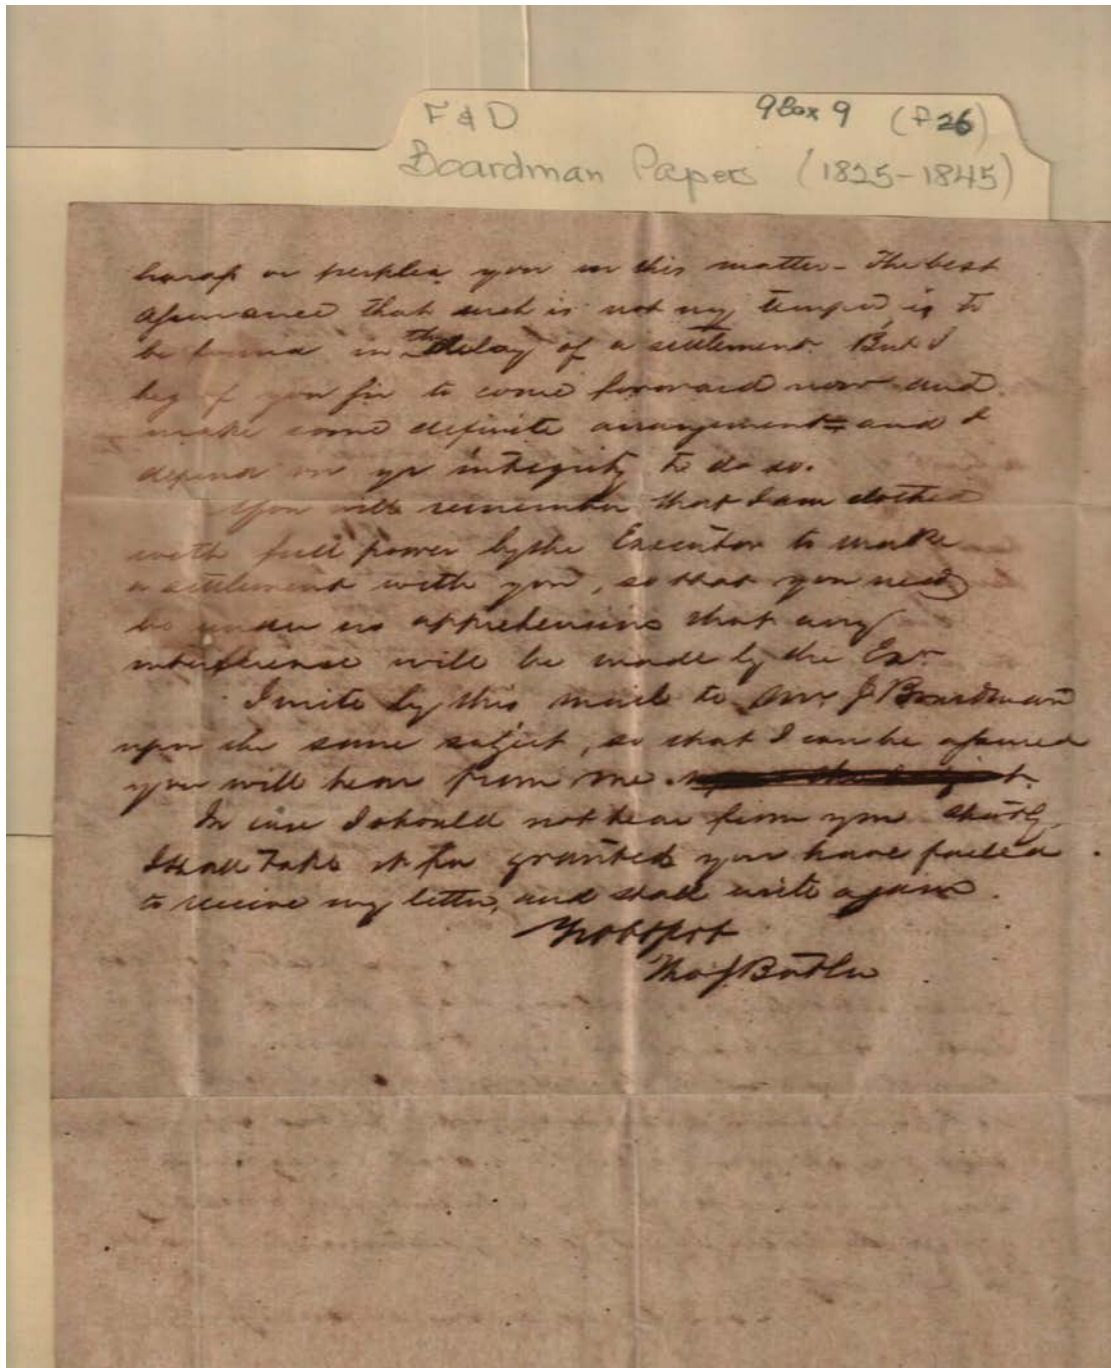 F & D 9 Box 9 (f 26)
Boardman Papers (1825-1845)
harass or perplex you in this matter - The best
assurance that such is not my temper is to
be found in the delay of a settlement. But I
beg of you Sir to come forward now and
make some definite arrangement and I
depend on yr integrity to do so.
You will remember that I am clothed
with full power by the Executor to make
a settlement with you, so that you need
be under no apprehensions that any
interference will be made by the Exr
I write by this mail to Mr J Boardman
upon the same subject, so that I can be assured
you will hear from me
In case I should not hear from you shortly
I shall take it for granted you have failed
to receive my letter, and shall write again.
Thos J